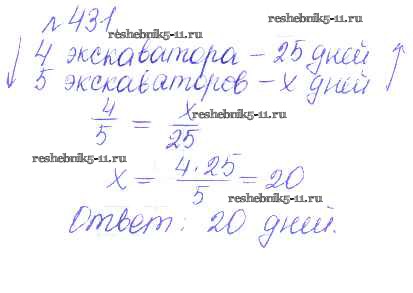 №431
reshebnik5-11.ru reshebnik5-11.ru
4 экскаватора – 25 дней
5 экскаваторов – x дней
4/5 = x/25 reshebnik5-11.ru
reshebnik5-11.ru
x = 4·25/5 = 20
reshebnik5-11.ru
Ответ: 20 дней.